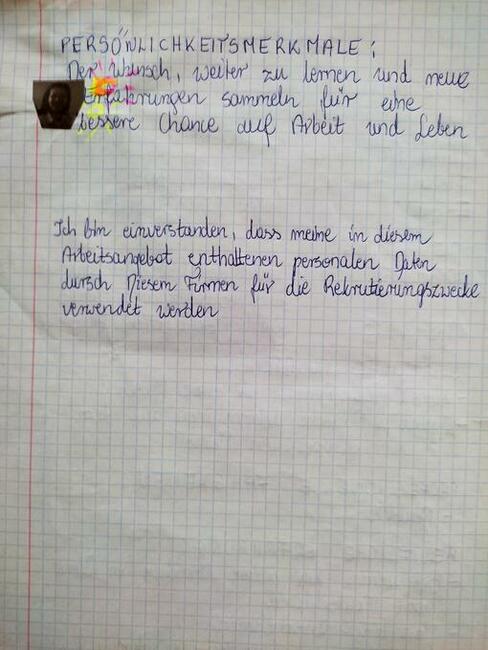 PERSÖNLICHKEITSMERKMALE:
Der Wunsch, weiter zu lernen und neue
Erfahrungen sammeln für eine
bessere Chance auf Arbeit und Leben
Ich bin einverstanden, dass meine in diesem
Arbeitsangebot enthaltenen personalen Daten
dursch Diesem Firmen für die Rekrutierungszwecke
verwendet werden